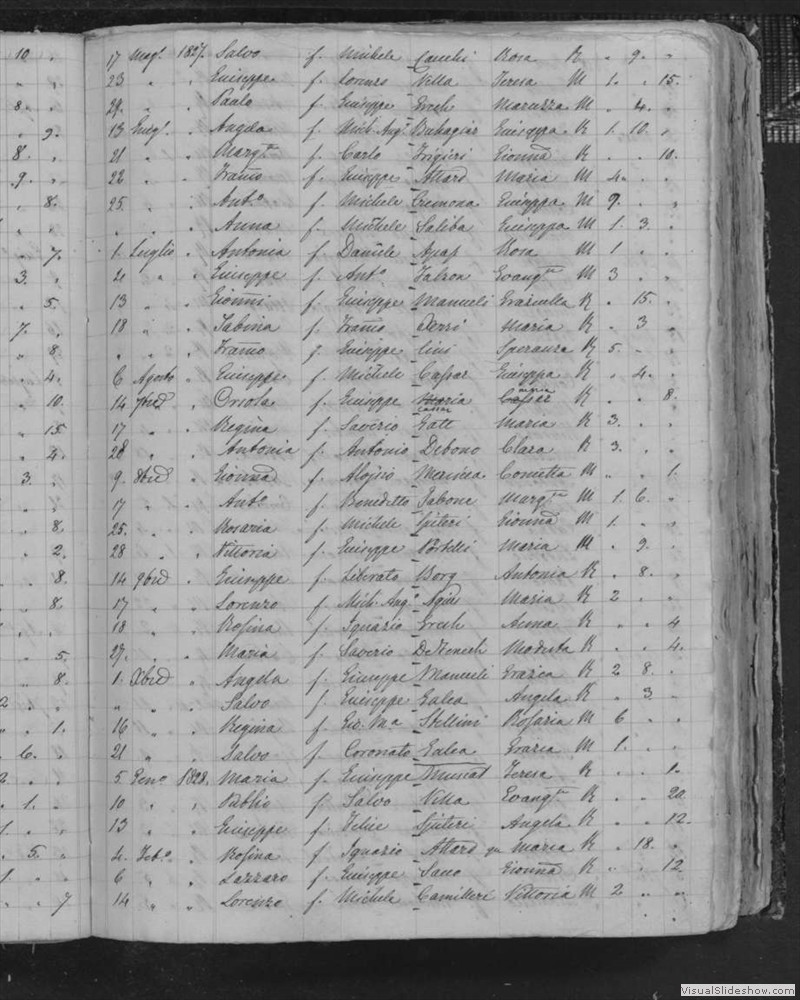 10.
17 Magº. 1827. Salvo f. Michele Cauchi Rosa R . 9. .
23 . . Giuseppe f. Lorenzo Villa Teresa M 1. . 15.
8.
29. . . Paolo f. Giuseppe Grech Maruzza M . 4. .
9.
13 Giugº. . Angela f. Mich: Angº. Buhagiar Giuseppa R 1. 10. .
8.
21 . . Margta. f. Carlo Frigieri R . . 10.
9.
22 . . f. Giuseppe Attard Maria M 4. . .
8.
25. . . Antº. f. Michele Cremona Giuseppa M 9. . .
. . . Anna f. Michele Saliba Giuseppa M 1. 3. .
7.
1. Luglio . Antonia f. Daniele Agap Rosa M 1 . .
3.
4 . . Giuseppe f. Antº. Falzon Evangta. M 3 . .
5.
13 . . Gionni f. Giuseppe Manueli Graziella R . 15. .
7.
18 . . Sabina f. Maria R . 3 .
8.
. . . g. Giuseppe Cini Speranza R 5. . .
4.
6 Agosto . Giuseppe f. Michele Caſsar Giuseppa R . 4. .
10.
14 7bre . Orsola f. Giuseppe Cassar Maria R . . 8.
15
17 . . Regina f. Saverio Gatt Maria R 3. . .
4.
28 . . Antonia f. Antonio Debono Clara R 3. . .
3.
9. 8bre . f. Alojsio M . . 1.
17 . . Antº. f. Benedetto Tabone Margta. M 1. 6. .
8.
25. . . Rosaria f. Michele Spiteri M 1. . .
2.
28 . . Vittoria f. Giuseppe Portelli Maria M . 9. .
8.
14 9bre . Giuseppe f. Liberato Borg Antonia R . 8. .
8.
17 . . Lorenzo f. Mich: Angº. Agius Maria R 2 . .
18 . . Rosina f. Ignazio Grech Anna R . . 4
5.
27. . . Maria f. Saverio Modesta R . . 4.
8.
1. Xbre . Angela f. Giuseppe Manueli Grazia R 2 8. .
2
" . . Salvo f. Giuseppe Galea Angela R . 3. .
1.
16 . . Regina f. Gio: Ma. Stellini Rosaria M 6 . .
6.
21 . . Salvo f. Coronato Galea Grazia M 1. . .
2.
5 Genº. 1828. Maria f. Giuseppe Muscat Teresa R . . 1.
1.
10 . . Publio f. Salvo Villa Evangta. R . . 20.
1.
13 . . Giuseppe f. Felice Spiteri Angela R . . 12.
5.
4. Febº. . Rosina f. Ignazio Attard Maria R . 18. .
1.
6 . . Lazzaro f. Giuseppe R . . 12
7
14 . . Lorenzo f. Michele Camilleri Vittoria M 2 . .
VisualSlideshow.com